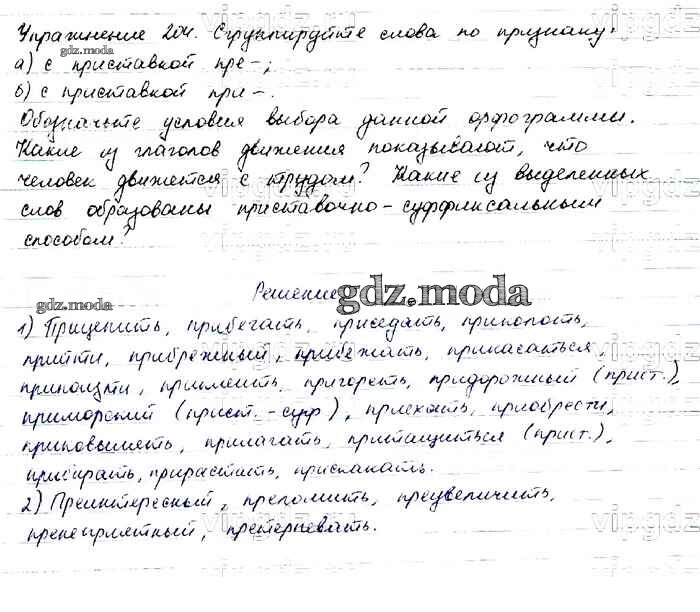 Упражнение 204. Сгруппируйте слова по признаку:
gdz.moda
а) с приставкой пре-;
б) с приставкой при-.
Обозначьте условия выбора данной орфограммы.
Какие из глаголов движения показывают, что
человек движется с трудом? Какие из выделенных
слов образованы приставочно-суффиксальным
способом?
Решение
gdz.moda
gdz.moda
1) Прицепить, прибегать, приседать, приколоть,
прийти, прибрежный, прибежать, прикасаться,
приползти, приклеить, пригореть, придорожный (прист.),
приморский (прист.-суфф), приехать, приобрести,
прилагать, притащиться (прист.),
прибирать, прирастить, прискакать.
2) Преинтересный, преломить, преувеличить,
пренеприятный, претерпевать.
vipgdz